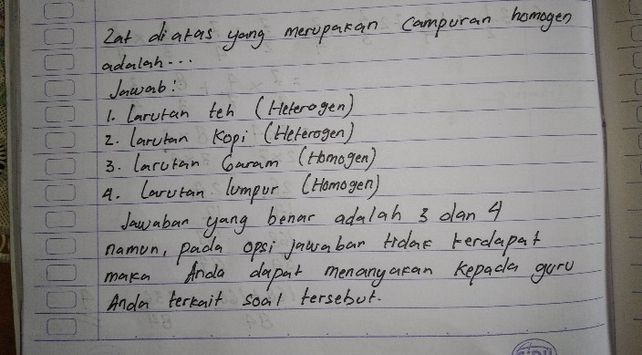 Zat di atas yang merupakan Campuran homogen
adalah...
Jawab:
1. Larutan teh (Heterogen)
2. Larutan Kopi (Heterogen)
3. Larutan Garam (Homogen)
4. Larutan lumpur (Homogen)
Jawaban yang benar adalah 3 dan 4
namun, pada opsi jawaban tidak terdapat
maka Anda dapat menanyakan kepada guru
Anda terkait soal tersebut.